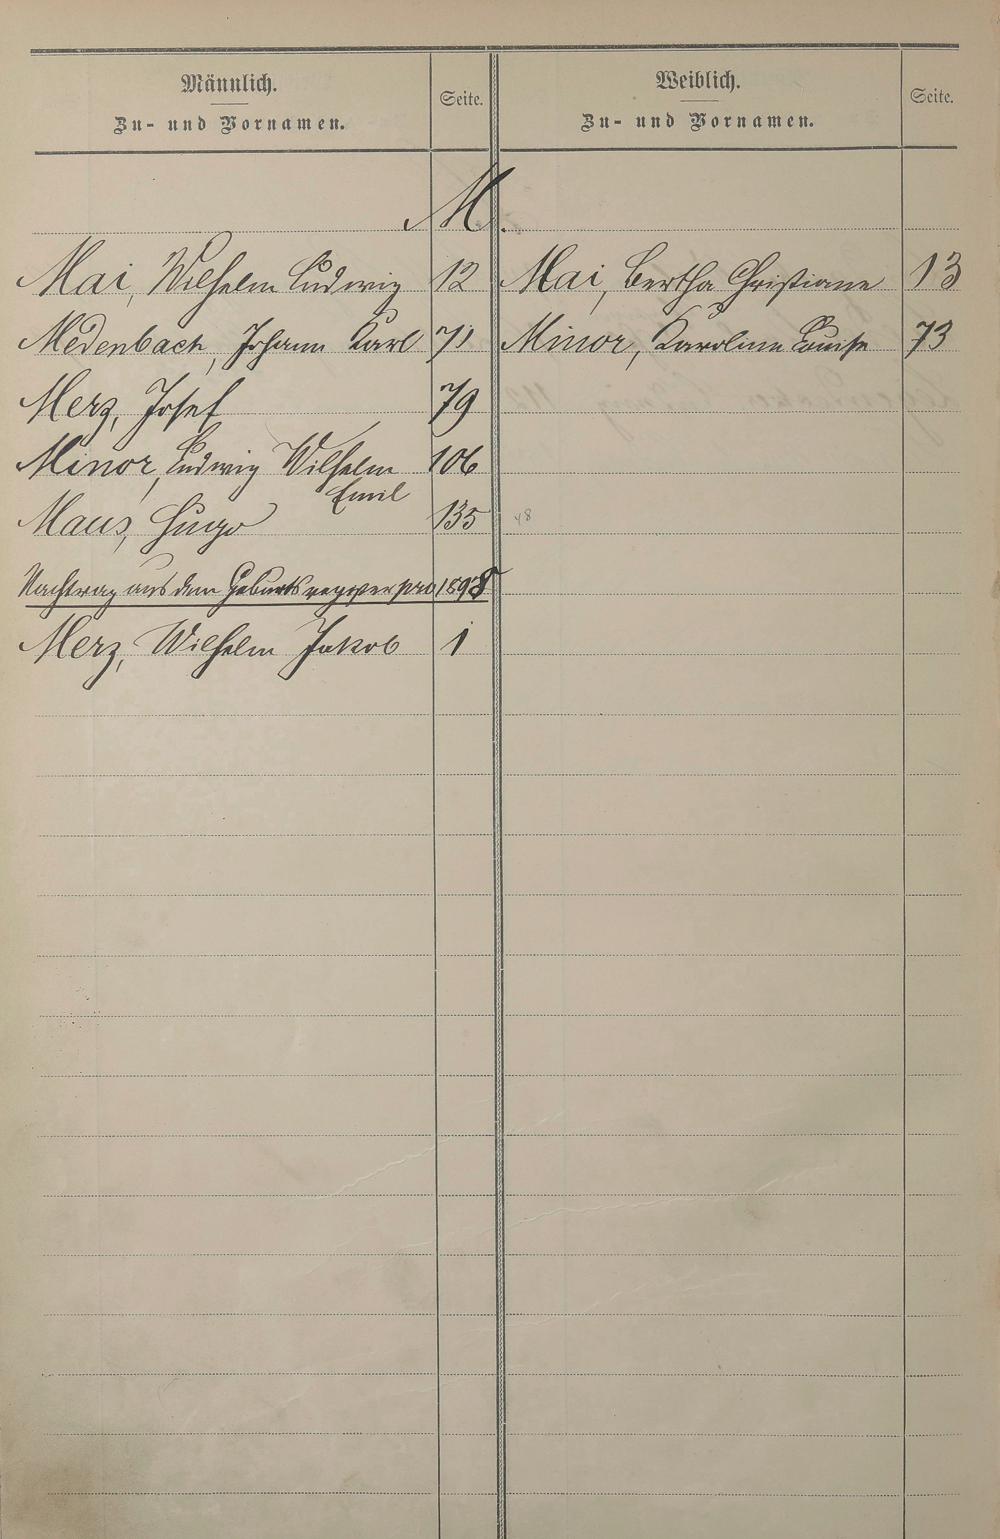 Männlich.
Zu- und Vornamen.
Seite.
Weiblich.
Zu- und Vornamen.
Seite.
M.
Mai, Wilhelm Ludwig 12
Mai, Bertha Christiane 13
Medenbach, Johann Karl 71
Minor, Karoline Louise 73
Merz, Josef 79
Minor, Ludwig Wilhelm 106
Emil
Maus, Hugo 135
48
Nachtrag aus dem Geburtsregister pro 1898
Merz, Wilhelm Jakob 1